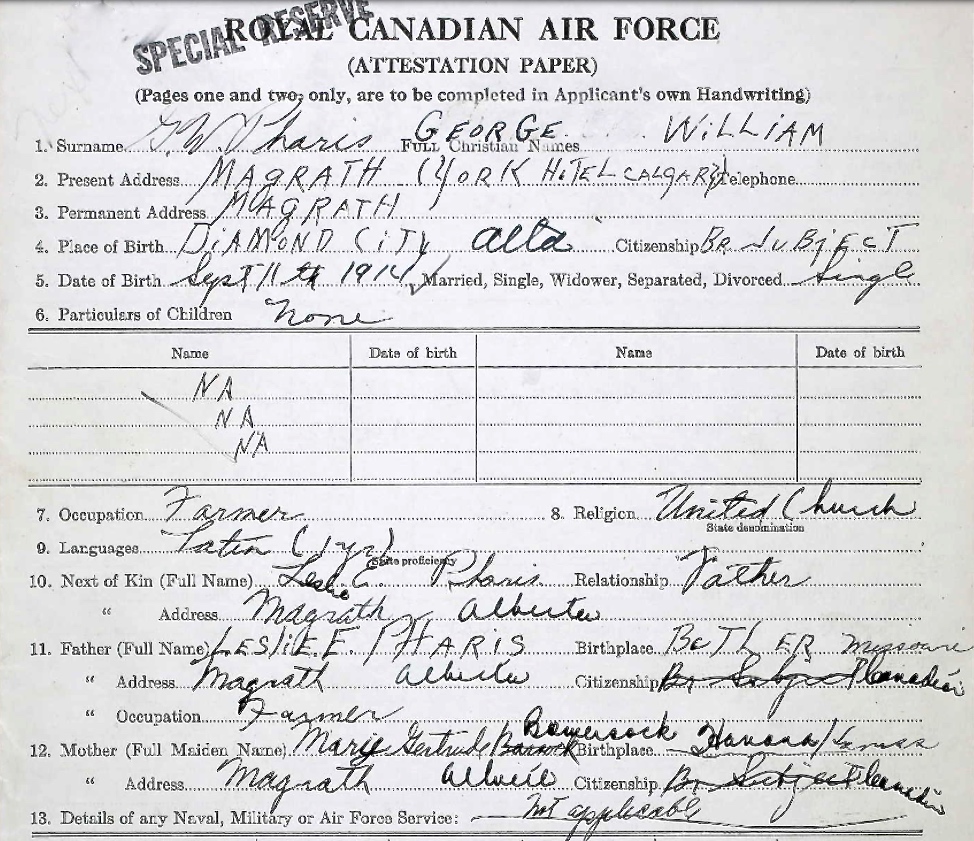 SPECIAL RESERVE
ROYAL CANADIAN AIR FORCE
(ATTESTATION PAPER)
(Pages one and two, only, are to be completed in Applicant's own Handwriting)
1. Surname G.W. Pharis FULL Christian Names GEORGE WILLIAM
2. Present Address MAGRATH (YORK HOTEL CALGARY) Telephone
3. Permanent Address MAGRATH
4. Place of Birth DIAMOND CITY Alta Citizenship BR SUBJECT
5. Date of Birth Sept 11th 1914 Married, Single, Widower, Separated, Divorced Single
6. Particulars of Children None
Name Date of birth Name Date of birth
NA
NA
NA
7. Occupation Farmer 8. Religion United Church
State denomination
9. Languages Latin (1 yr)
State proficiency
10. Next of Kin (Full Name) Leslie E. Pharis Relationship Father
" Address Magrath Alberta
11. Father (Full Name) LESLIE E. PHARIS Birthplace BUTLER Missouri
" Address Magrath Alberta Citizenship Br Subject Canadian
" Occupation Farmer
12. Mother (Full Maiden Name) Marie Gertrude Bowersock Birthplace Havana
" Address Magrath Citizenship Br Subject Canadian
13. Details of any Naval, Military or Air Force Service: Not applicable